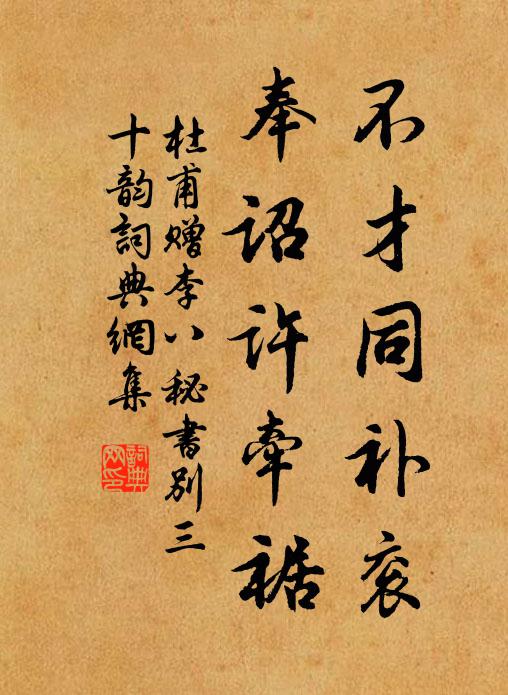 不才同补衮
奉诏许牵裾
杜甫赠李八秘书别三
十韵詞典網集
詞典网印